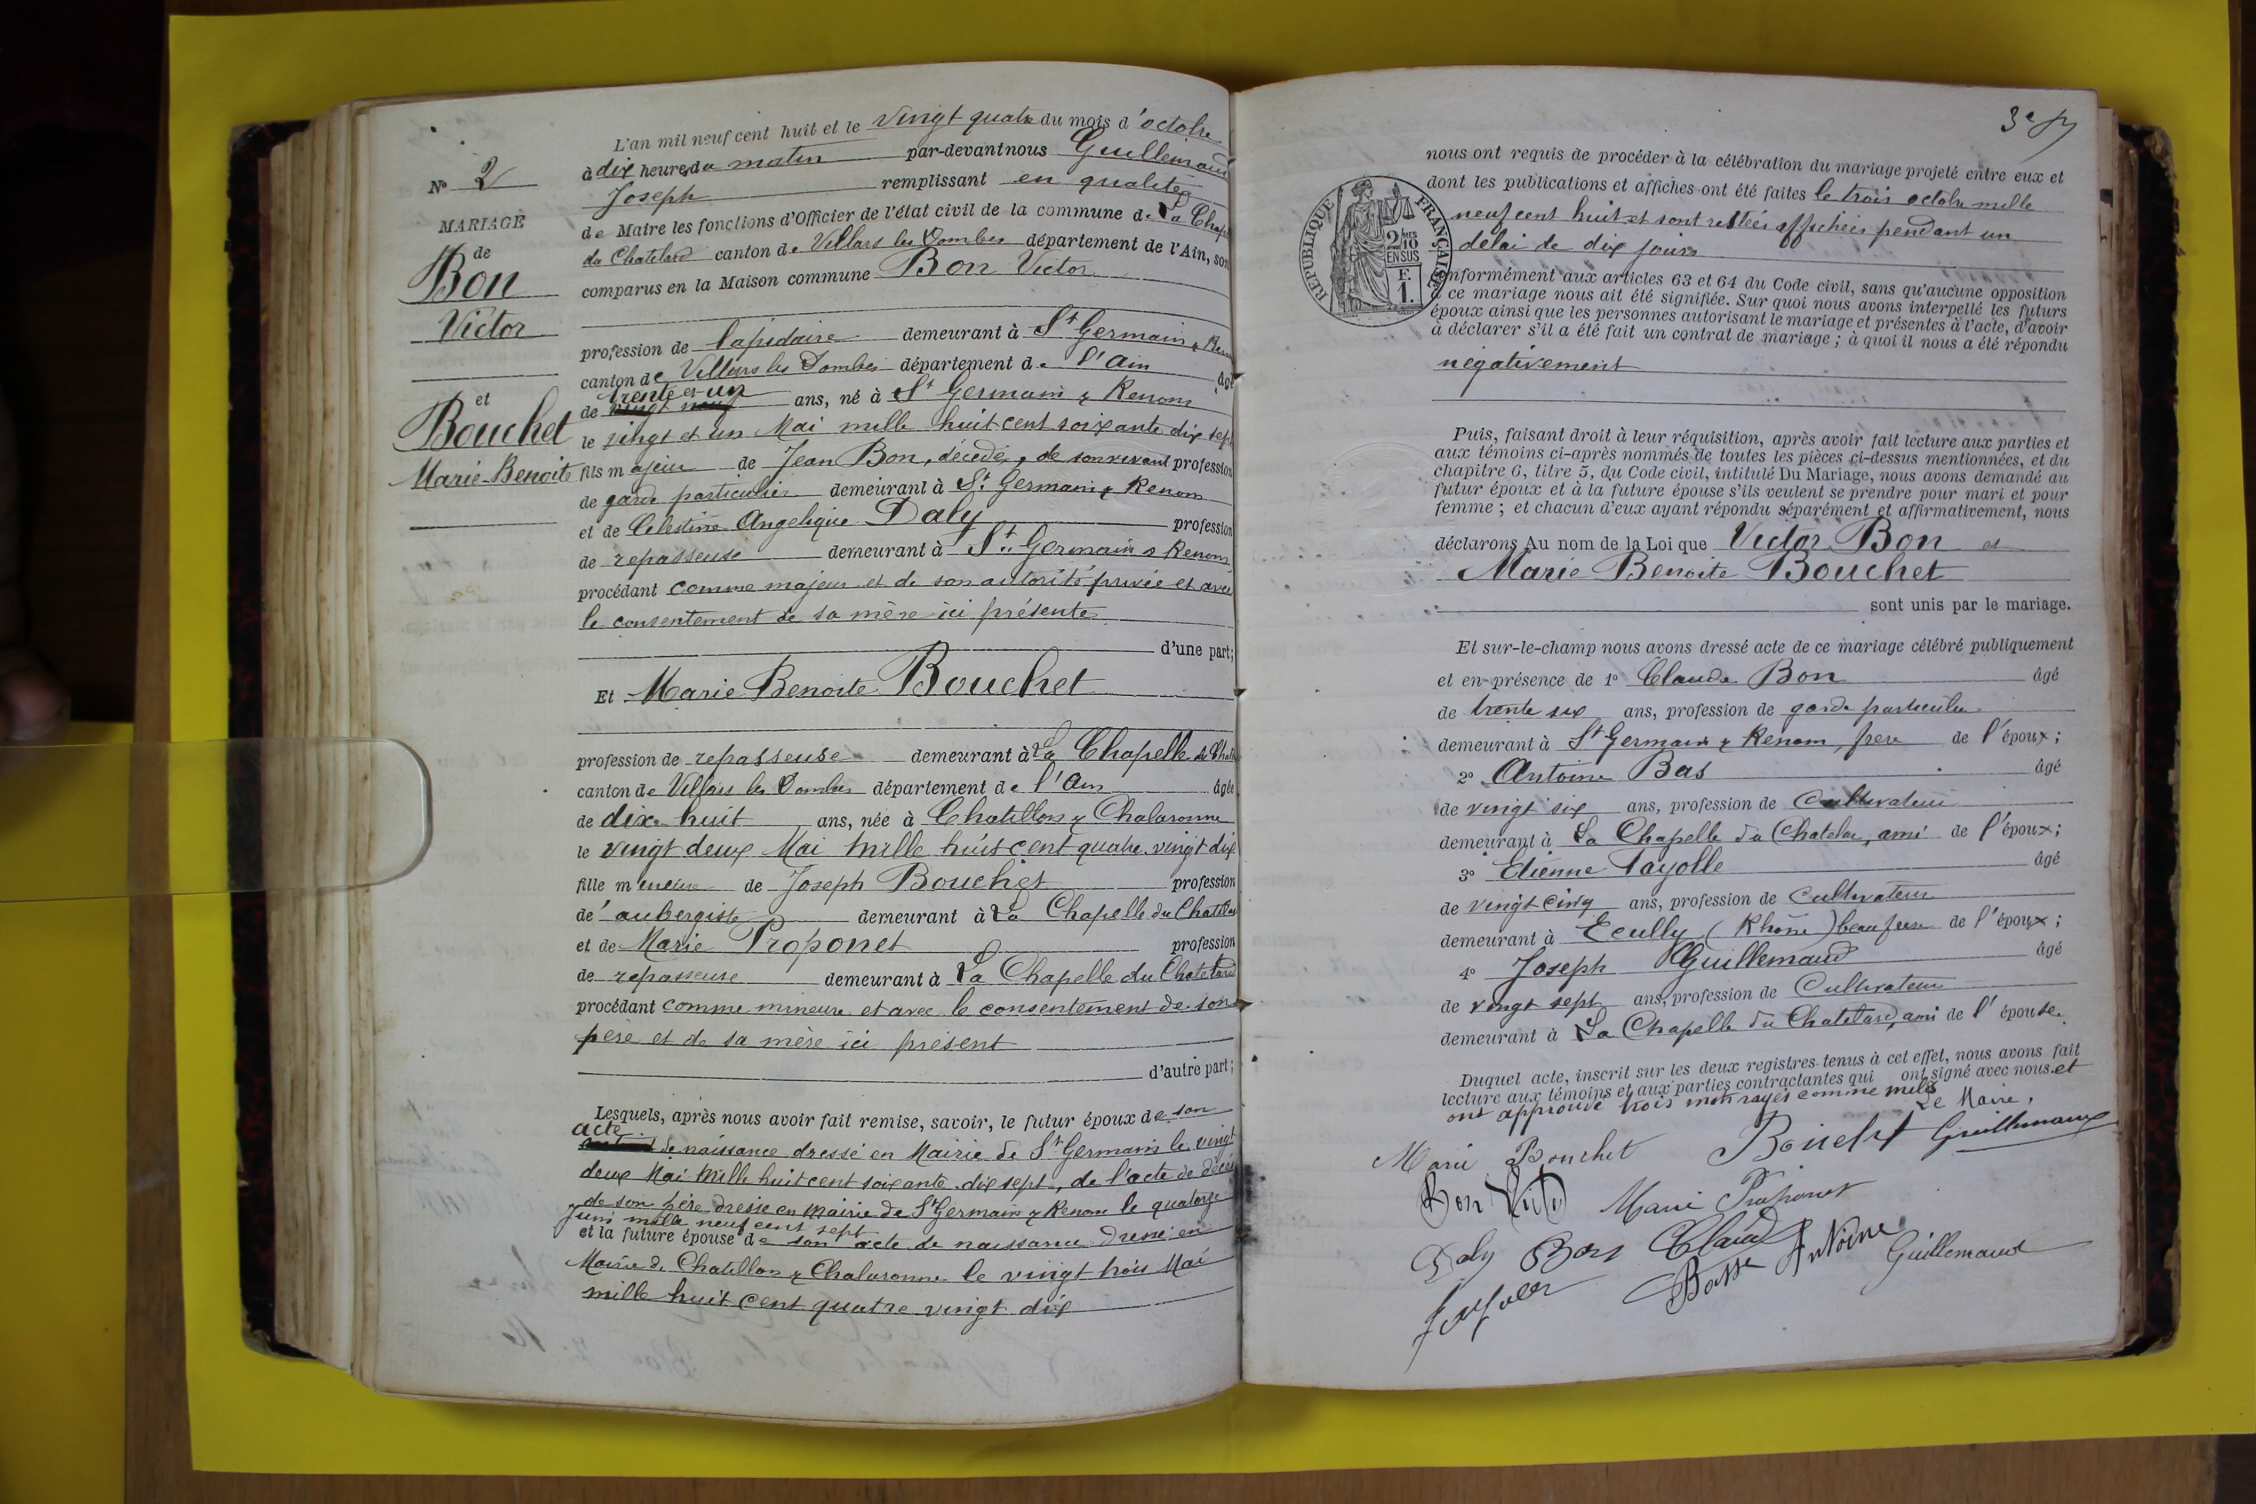 N° 2
MARIAGE
de
Bon
Victor
et
Bouchet
Marie-Benoite
L'an mil neuf cent huit et le vingt quatre du mois d'octobre
à dix heures du matin par-devant nous Guillemaud
Joseph remplissant en qualité
de Maire les fonctions d'Officier de l'état civil de la commune de La Chapelle
du Chatelard canton de Villars les Dombes département de l'Ain, sont
comparus en la Maison commune Bon Victor
profession de lapidaire demeurant à St Germain s Renom
canton de Villars les Dombes département de l'Ain âgé
trente et un
de vingt neuf ans, né à St Germain s Renom
le vingt et un Mai mille huit cent soixante dix sept
fils majeur de Jean Bon, décédé, de son vivant profession
de garde particulier demeurant à St Germain s Renom
et de Celestine Angelique Daly profession
de repasseuse demeurant à St Germain s Renom
procédant comme majeur et de son autorité privée et avec
le consentement de sa mère ici présente
d'une part;
Et Marie Benoite Bouchet
profession de repasseuse demeurant à La Chapelle du Chate
canton de Villars les Dombes département de l'Ain âgée
de dix huit ans, née à Chatillon s Chalaronne
le vingt deux Mai mille huit cent quatre vingt dix
fille mineure de Joseph Bouchet profession
de aubergiste demeurant à La Chapelle du Chatelard
et de Marie Proponet profession
de repasseuse demeurant à La Chapelle du Chatelard
procédant comme mineure et avec le consentement de son
père et de sa mère ici présent
d'autre part;
Lesquels, après nous avoir fait remise, savoir, le futur époux de son
acte
de naissance dressé en Mairie de St Germain le vingt
deux Mai mille huit cent soixante dix sept, de l'acte de décès
de son père dressé en Mairie de St Germain s Renom le quatorze
Juin mille neuf cent sept
et la future épouse de son acte de naissance dressé en
Mairie de Chatillon s Chalaronne le vingt trois Mai
mille huit cent quatre vingt dix
nous ont requis de procéder à la célébration du mariage projeté entre eux et
dont les publications et affiches ont été faites le trois octobre mille
neuf cent huit et sont restées affichées pendant un
délai de dix jours
RÉPUBLIQUE FRANÇAISE
2/10
EN SUS
F.
1.
conformément aux articles 63 et 64 du Code civil, sans qu'aucune opposition
à ce mariage nous ait été signifiée. Sur quoi nous avons interpellé les futurs
époux ainsi que les personnes autorisant le mariage et présentes à l'acte, d'avoir
à déclarer s'il a été fait un contrat de mariage; à quoi il nous a été répondu
négativement
Puis, faisant droit à leur réquisition, après avoir fait lecture aux parties et
aux témoins ci-après nommés de toutes les pièces ci-dessus mentionnées, et du
chapitre 6, titre 5, du Code civil, intitulé Du Mariage, nous avons demandé au
futur époux et à la future épouse s'ils veulent se prendre pour mari et pour
femme; et chacun d'eux ayant répondu séparément et affirmativement, nous
déclarons Au nom de la Loi que Victor Bon et
Marie Benoite Bouchet
sont unis par le mariage.
Et sur-le-champ nous avons dressé acte de ce mariage célébré publiquement
et en présence de 1° Claude Bon âgé
de trente six ans, profession de garde particulier
demeurant à St Germain s Renom, frere de l'époux;
2° Antoine Bas âgé
de vingt six ans, profession de Cultivateur
demeurant à La Chapelle du Chatelar, ami de l'époux;
3° Etienne Fayolle âgé
de vingt cinq ans, profession de Cultivateur
demeurant à Ecully (Rhône) beau frere de l'époux;
4° Joseph Guillemaud âgé
de vingt sept ans, profession de Cultivateur
demeurant à La Chapelle du Chatelard, ami de l'épouse.
Duquel acte, inscrit sur les deux registres tenus à cet effet, nous avons fait
lecture aux témoins et aux parties contractantes qui ont signé avec nous et
ont approuvé trois mots rayés comme nuls
Le Maire,
Marie Bouchet Bouchet Guillemaud
Bon Marie Proponet
Daly Bon Claud Basse Antoine Guillemaud